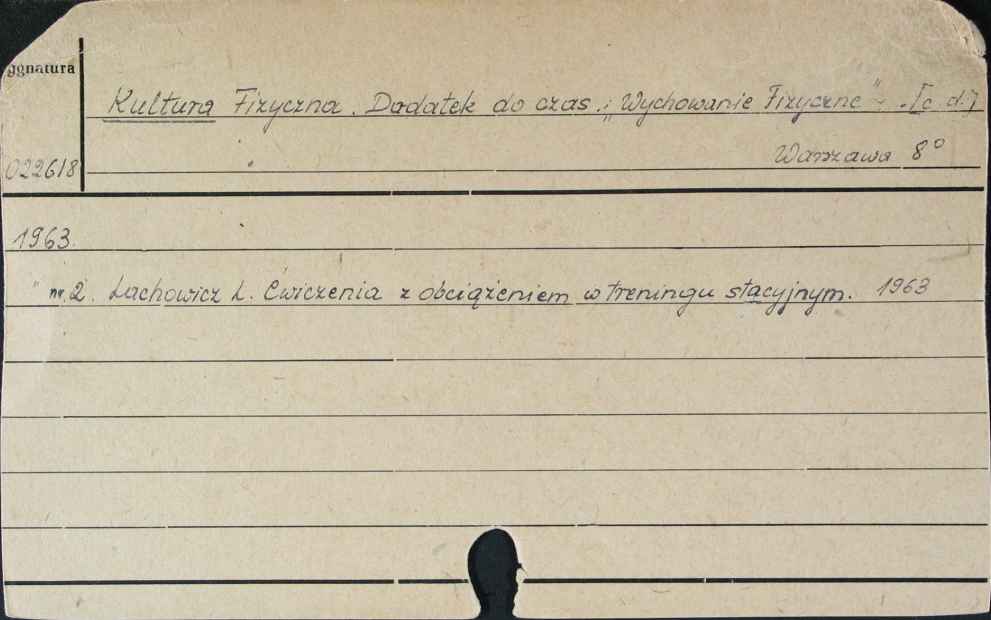 ygnatura
Kultura Fizyczna. Dodatek do czas.: „Wychowanie Fizyczne”. [c.d.]
022618 Warszawa 8°
1963.
" nr. 2. Lachowicz L. Ćwiczenia z obciążeniem w treningu stacyjnym. 1963